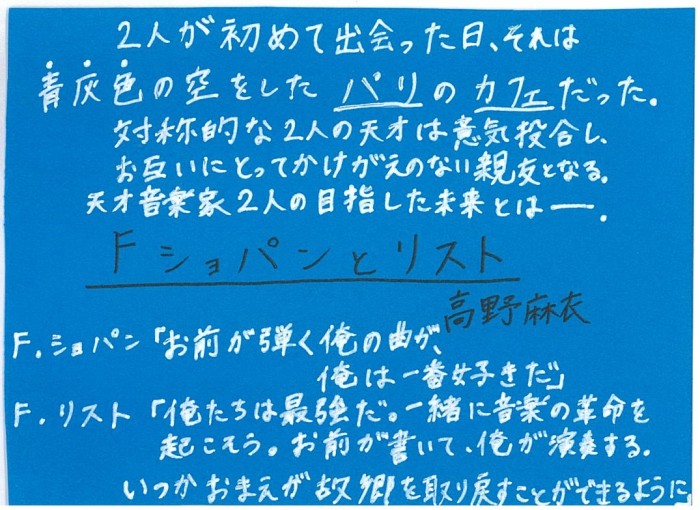 2人が初めて出会った日、それは
青灰色の空をしたパリのカフェだった。
対称的な2人の天才は意気投合し、
お互いにとってかけがえのない親友となる。
天才音楽家2人の目指した未来とは―.
Fショパンとリスト
高野麻衣
F.ショパン「お前が弾く俺の曲が、
俺は一番好きだ」
F.リスト「俺たちは最強だ。一緒に音楽の革命を
起こそう。お前が書いて、俺が演奏する.
いつかおまえが故郷を取り戻すことができるように,